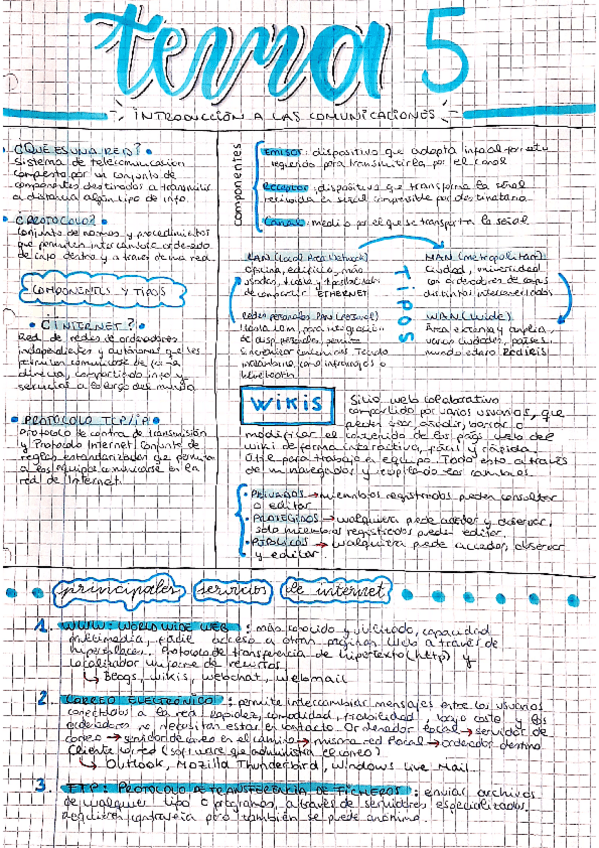 tema 5
INTRODUCCIÓN A LAS COMUNICACIONES
¿QUÉ ES UNA RED?
Sistema de telecomunicación
compuesto por un conjunto de
componentes destinados a transmitir
a distancia algún tipo de info.
¿PROTOCOLO?
Conjunto de normas y procedimientos
que permiten intercambio ordenado
de info dentro y a través de una red.
COMPONENTES Y TIPOS
¿INTERNET?
Red de redes de ordenadores
independientes y autónomas que les
permiten comunicarse de forma
directa, compartiendo info y
servicios a lo largo del mundo.
PROTOCOLO TCP/IP
Protocolo de control de transmisión
y Protocolo Internet. Conjunto de
reglas estandarizadas que permite
a los equipos comunicarse en
red de Internet.
componentes
Emisor: dispositivo que adapta info al formato
requerido para transmitirla por el canal
Receptor: dispositivo que transforma la señal
recibida en señal comprensible por destinatario
Canal: medio por el que se transporta la señal
TIPOS
LAN (Local Area Network)
Oficina, edificio, más
usadas, trabajo y posibilidad
de compartir ETHERNET
Redes personales PAN (Personal)
Hasta 10m, para integración
de disp. personales, permite
como infrarrojos o
bluetooth.
MAN (metropolitan):
Ciudad, universidad
con ordenadores de campus
distintos interconectados
WAN (Wide)
Área extensa y amplia,
varias ciudades, países...
mundo entero RedIRIS
WIKIS
Sitio web colaborativo
compartido por varios usuarios, que
pueden crear, añadir, borrar o
modificar el contenido de las págs web del
wiki de forma interactiva, fácil y rápida.
Útil para trabajo en equipo. Todo esto a través
de un navegador y los cambios.
PRIVADOS → miembros registrados pueden consultar
o editar
PROTEGIDOS → cualquiera puede acceder y observar,
solo miembros registrados pueden editar.
PÚBLICOS → cualquiera puede acceder, observar
y editar.
principales servicios de internet
1. WWW: WORLD WIDE WEB: más conocido y utilizado, capacidad
multimedia, fácil acceso a otras páginas web a través de
hiperenlaces. Protocolo de transparencia de hipertexto (http) y
Localizador uniforme de recursos.
↳ Blogs, wikis, webchat, webmail
2. CORREO ELECTRÓNICO: permite intercambiar mensajes entre los usuarios
conectados a la red. Rapidez, comodidad, fiabilidad, bajo coste y los
ordenadores no necesitan estar en contacto. Ordenador local → servidor de
correo → servidor de correo en el camino → misma red local → ordenador destino
Cliente correo (software que administra el correo)
↳ Outlook, Mozilla Thunderbird, Windows Live Mail
3. FTP: PROTOCOLO DE TRANSFERENCIA DE FICHEROS: enviar archivos
de cualquier tipo o programas, a través de servidores especializados.
requieren contraseña pero también se puede anónimo.